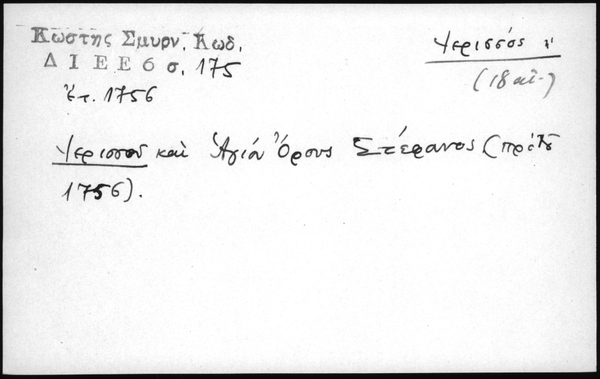 Κώστης Σμυρν. Κωδ.
ΔΙΕΕ 6 σ. 175
ἔτ. 1756
Ἱερισσός
(18 αἰ.)
Ἱερισσοῦ καὶ Ἁγίου Ὄρους Στέφανος (πρὸ τοῦ
1756).